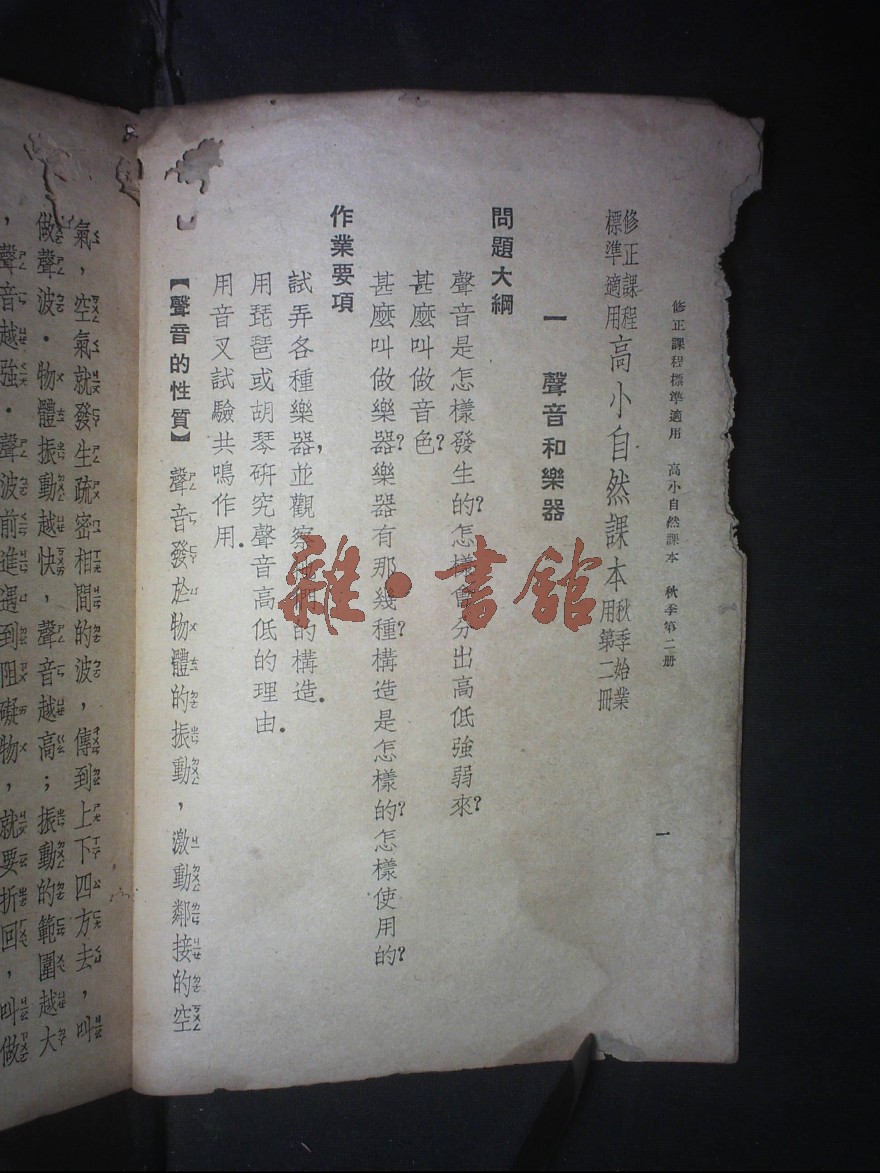 修正課程標準適用 高小自然課本 秋季第二册
一
修正課程標準適用 高小自然課本 秋季始業用第二冊
一 聲音和樂器
問題大綱
聲音是怎樣發生的?怎樣會分出高低強弱來?
甚麼叫做音色?
甚麼叫做樂器?樂器有那幾種?構造是怎樣的?怎樣使用的?
作業要項
試弄各種樂器,並觀察他們的構造.
用琵琶或胡琴研究聲音高低的理由.
用音叉試驗共鳴作用.
【聲音的性質】 聲音發於物體的振動,激動鄰接的空
氣,空氣就發生疏密相間的波,傳到上下四方去,叫
做聲波.物體振動越快,聲音越高;振動的範圍越大
,聲音越強.聲波前進遇到阻礙物,就要折回,叫做
雜·書館